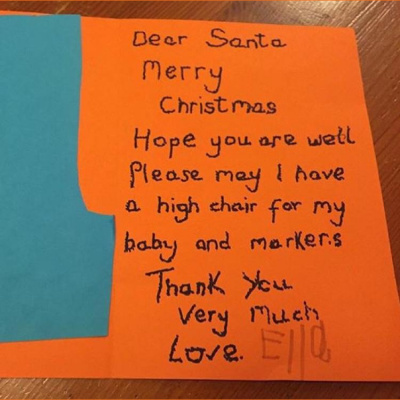 Dear Santa
Merry
Christmas
Hope you are well
Please may I have
a high chair for my
baby and markers
Thank you
very Much
Love. Ella